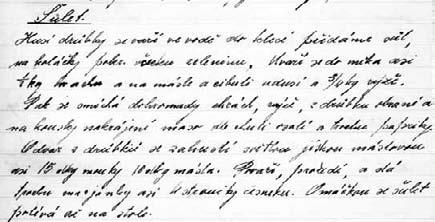 Šulet.
Husí drůbky se vaří ve vodě do které přidáme sůl,
na koláčky pokr. všecku zeleninu. Uvaří se do měka asi
1 kg hrachu a na másle a cibuli udusí a 3/4 kg rýže.
Pak se smíchá dohromady hrách, rýže, z drůbku obrané a
na kousky nakrájené maso dle chuti osolí a trochu papriky.
Odvar z drůbků se zahustí světlou jíškou máslovou
asi 15 dkg mouky 10 dkg másla. Povaří, procedí, a dá
trochu majoránky asi 4 stroužky česneku. Omáčkou se šulet
polévá až na stole.